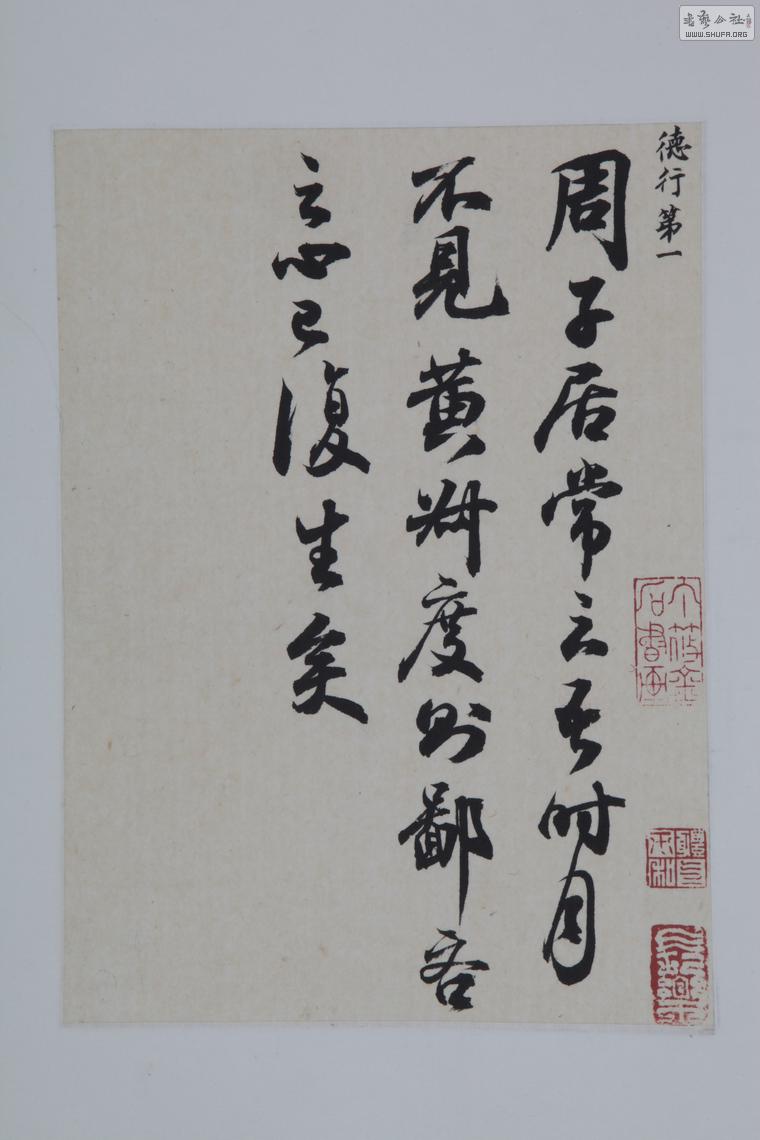 德行第一
周子居常云吾时月
不见黄叔度则鄙吝
之心已復生矣
書藝公社
WWW.SHUFA.ORG